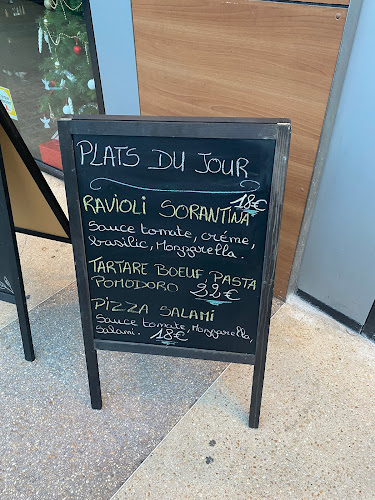 PLATS DU JOUR
RAVIOLI SORANTINA 18€
Sauce tomate, créme,
basilic, Mozzarella.
TARTARE BOEUF PASTA
POMODORO 22€
PIZZA SALAMI
Sauce tomate, Mozzarella,
Salami. 18€